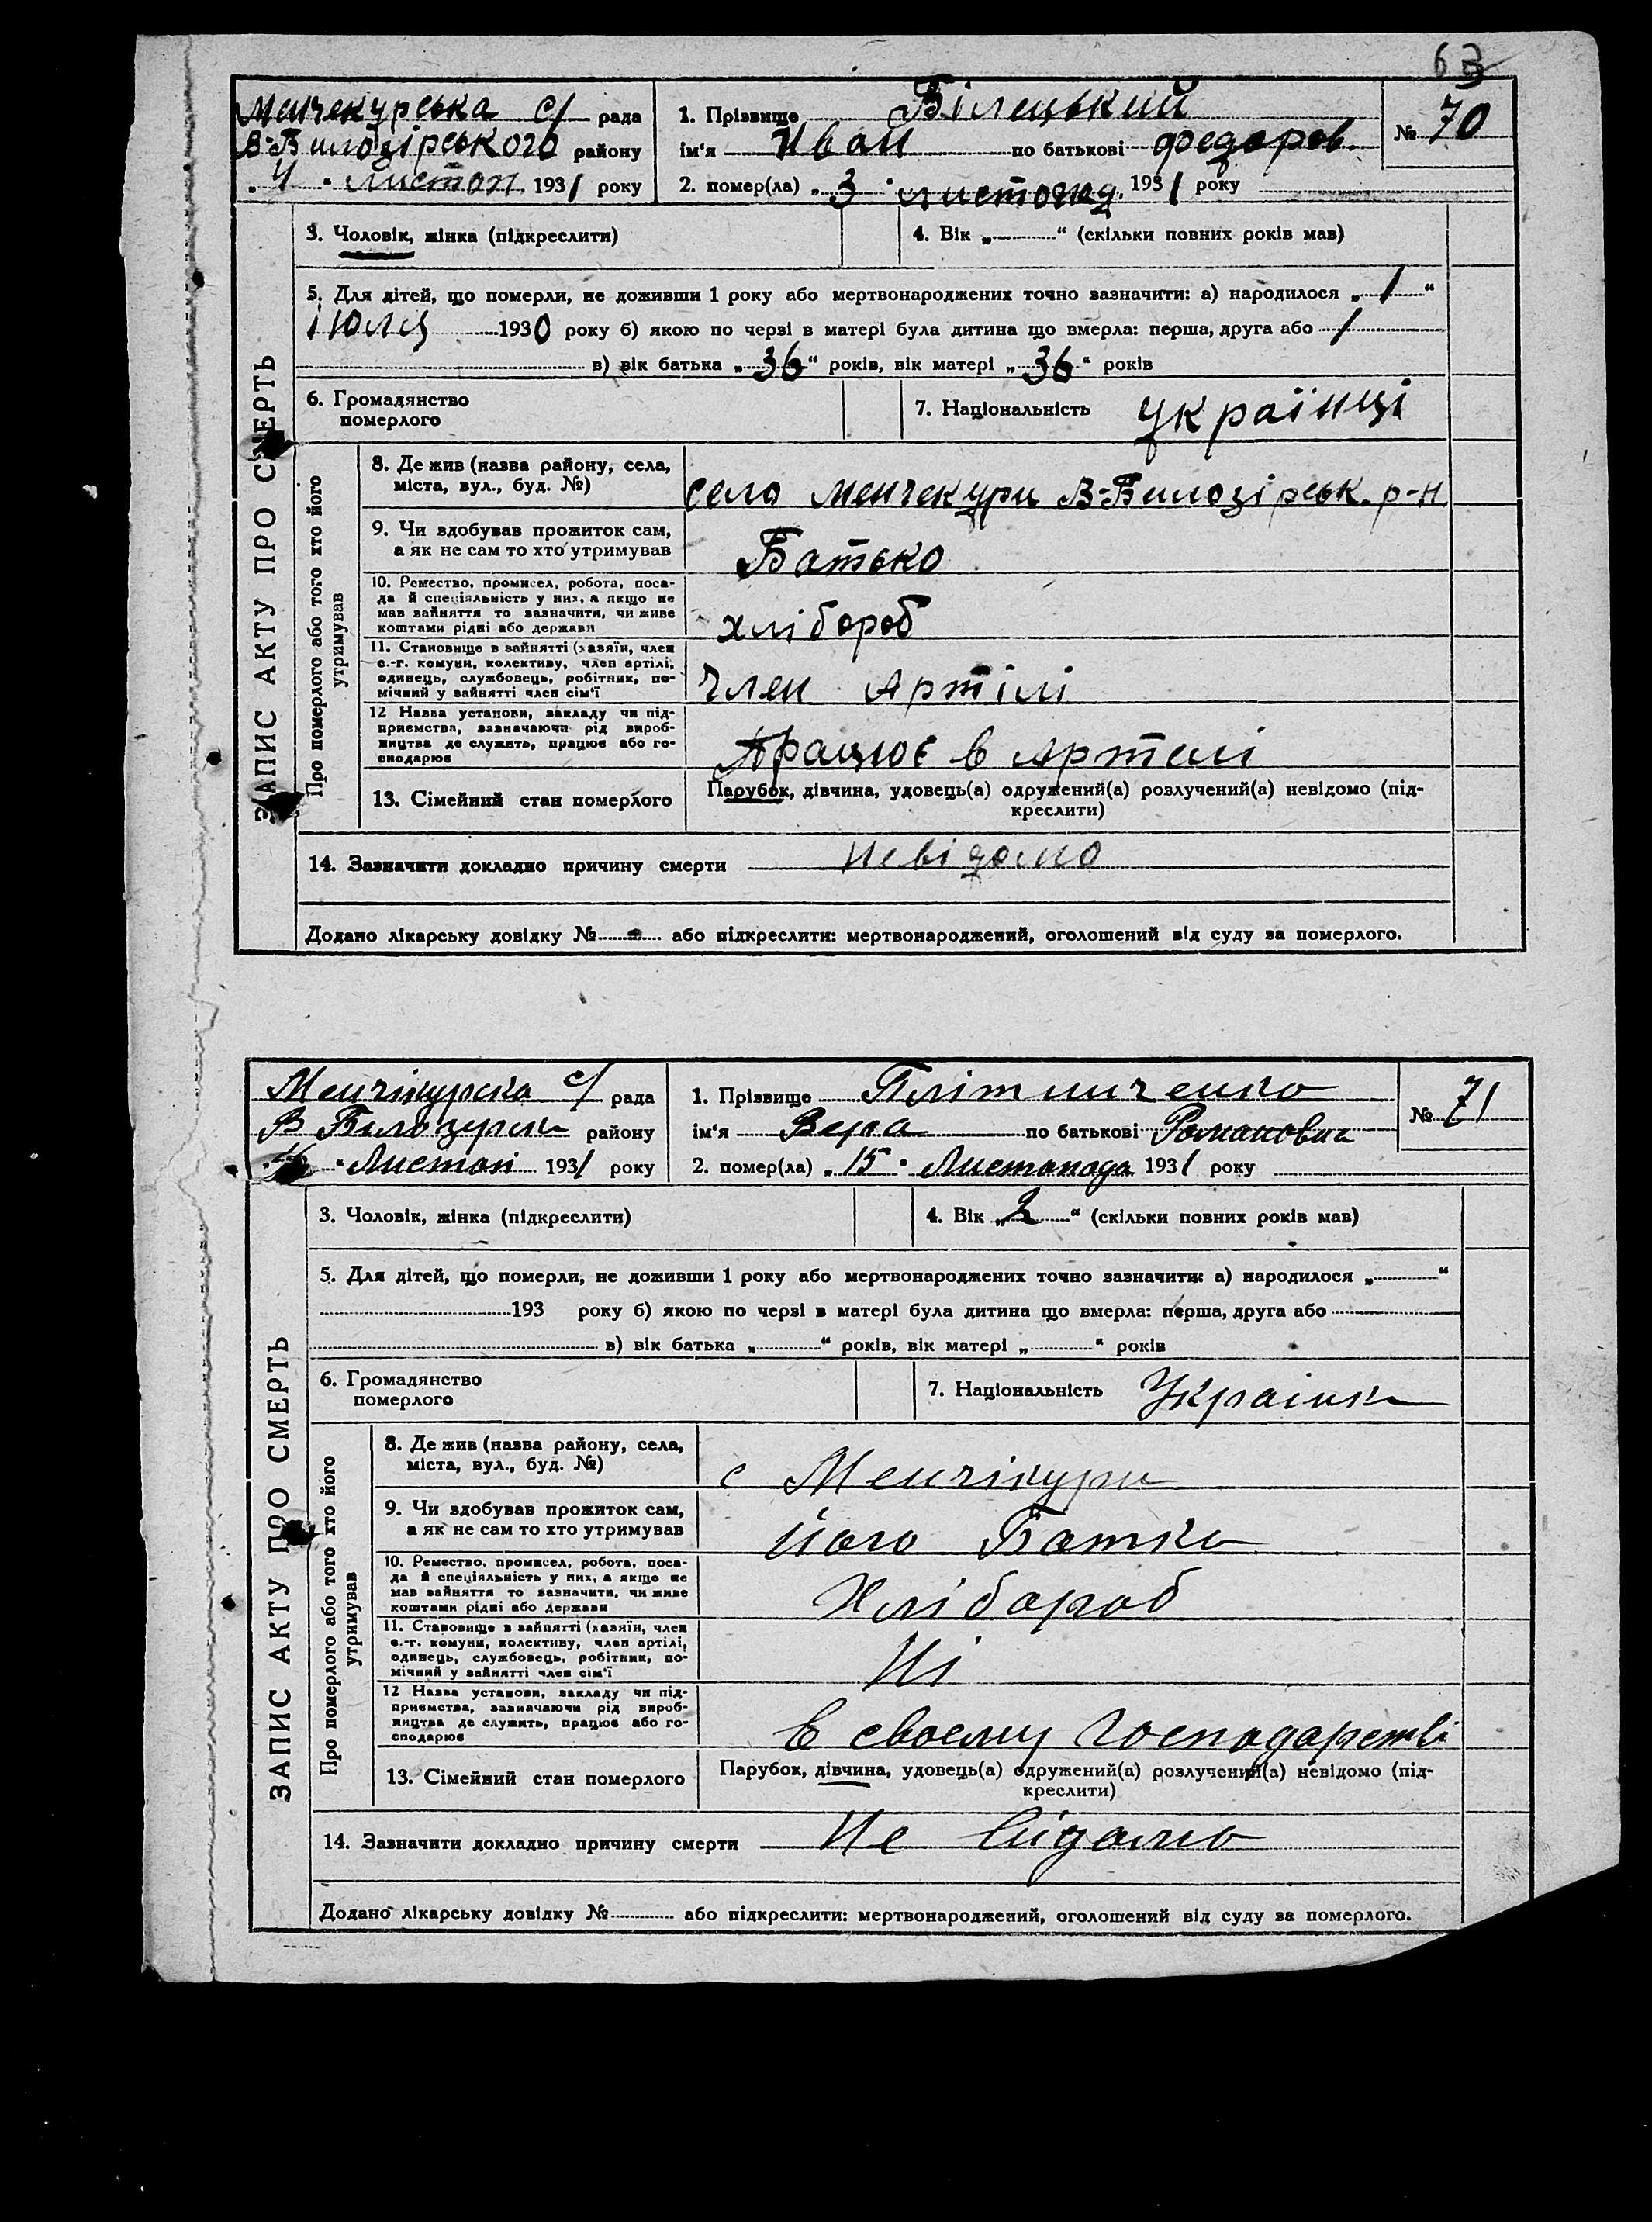 63
Менчекурська с/ рада
В-Билозірського району
„4“ Листоп 1931 року
1. Прізвище Білецький
ім'я Иван по батькові Федоров.
2. помер(ла) „3“ листопад. 1931 року
№ 70
ЗАПИС АКТУ ПРО СМЕРТЬ
3. Чоловік, жінка (підкреслити)
4. Вік „ “ (скільки повних років мав)
5. Для дітей, що померли, не доживши 1 року або мертвонароджених точно зазначити: а) народилося „1“
Июля 1930 року б) якою по черзі в матері була дитина що вмерла: перша, друга або 1
в) вік батька „36“ років, вік матері „36“ років
6. Громадянство
померлого
7. Національність українці
Про померлого або того хто його
утримував
8. Де жив (назва району, села,
міста, вул., буд. №)
село Менчекури В-Билозірськ. р-н
9. Чи здобував прожиток сам,
а як не сам то хто утримував
Батько
10. Ремество, промисел, робота, поса-
да й спеціяльність у них, а якщо не
мав зайняття то зазначити, чи живе
коштами рідні або держави
хлібороб
11. Становище в зайнятті (хазяїн, член
с.-г. комуни, колективу, член артілі,
одинець, службовець, робітник, по-
мічний у зайнятті член сім'ї
Член Артілі
12 Назва установи, закладу чи під-
приємства, зазначаючи рід вироб-
ництва де служить, працює або го-
сподарює
Працює в артилі
13. Сімейний стан померлого
Парубок, дівчина, удовець(а) одружений(а) розлучений(а) невідомо (під-
креслити)
14. Зазначити докладно причину смерти невідомо
Додано лікарську довідку № - або підкреслити: мертвонароджений, оголошений від суду за померлого.
Менчікурска с/ рада
В Билозурск району
Листоп 1931 року
1. Прізвище Плітниченко
ім'я Вера по батькові Романовна
2. помер(ла) „15“ Листопада 1931 року
№ 71
ЗАПИС АКТУ ПРО СМЕРТЬ
3. Чоловік, жінка (підкреслити)
4. Вік „2“ (скільки повних років мав)
5. Для дітей, що померли, не доживши 1 року або мертвонароджених точно зазначити: а) народилося „ “
193 року б) якою по черзі в матері була дитина що вмерла: перша, друга або
в) вік батька „ “ років, вік матері „ “ років
6. Громадянство
померлого
7. Національність Украінка
Про померлого або того хто його
утримував
8. Де жив (назва району, села,
міста, вул., буд. №)
с Менчікури
9. Чи здобував прожиток сам,
а як не сам то хто утримував
його Батко
10. Ремество, промисел, робота, поса-
да й спеціяльність у них, а якщо не
мав зайняття то зазначити, чи живе
коштами рідні або держави
Хлібороб
11. Становище в зайнятті (хазяїн, член
с.-г. комуни, колективу, член артілі,
одинець, службовець, робітник, по-
мічний у зайнятті член сім'ї
Ні
12 Назва установи, закладу чи під-
приємства, зазначаючи рід вироб-
ництва де служить, працює або го-
сподарює
в своему господарстві
13. Сімейний стан померлого
Парубок, дівчина, удовець(а) одружений(а) розлучений(а) невідомо (під-
креслити)
14. Зазначити докладно причину смерти Не відомо
Додано лікарську довідку № або підкреслити: мертвонароджений, оголошений від суду за померлого.